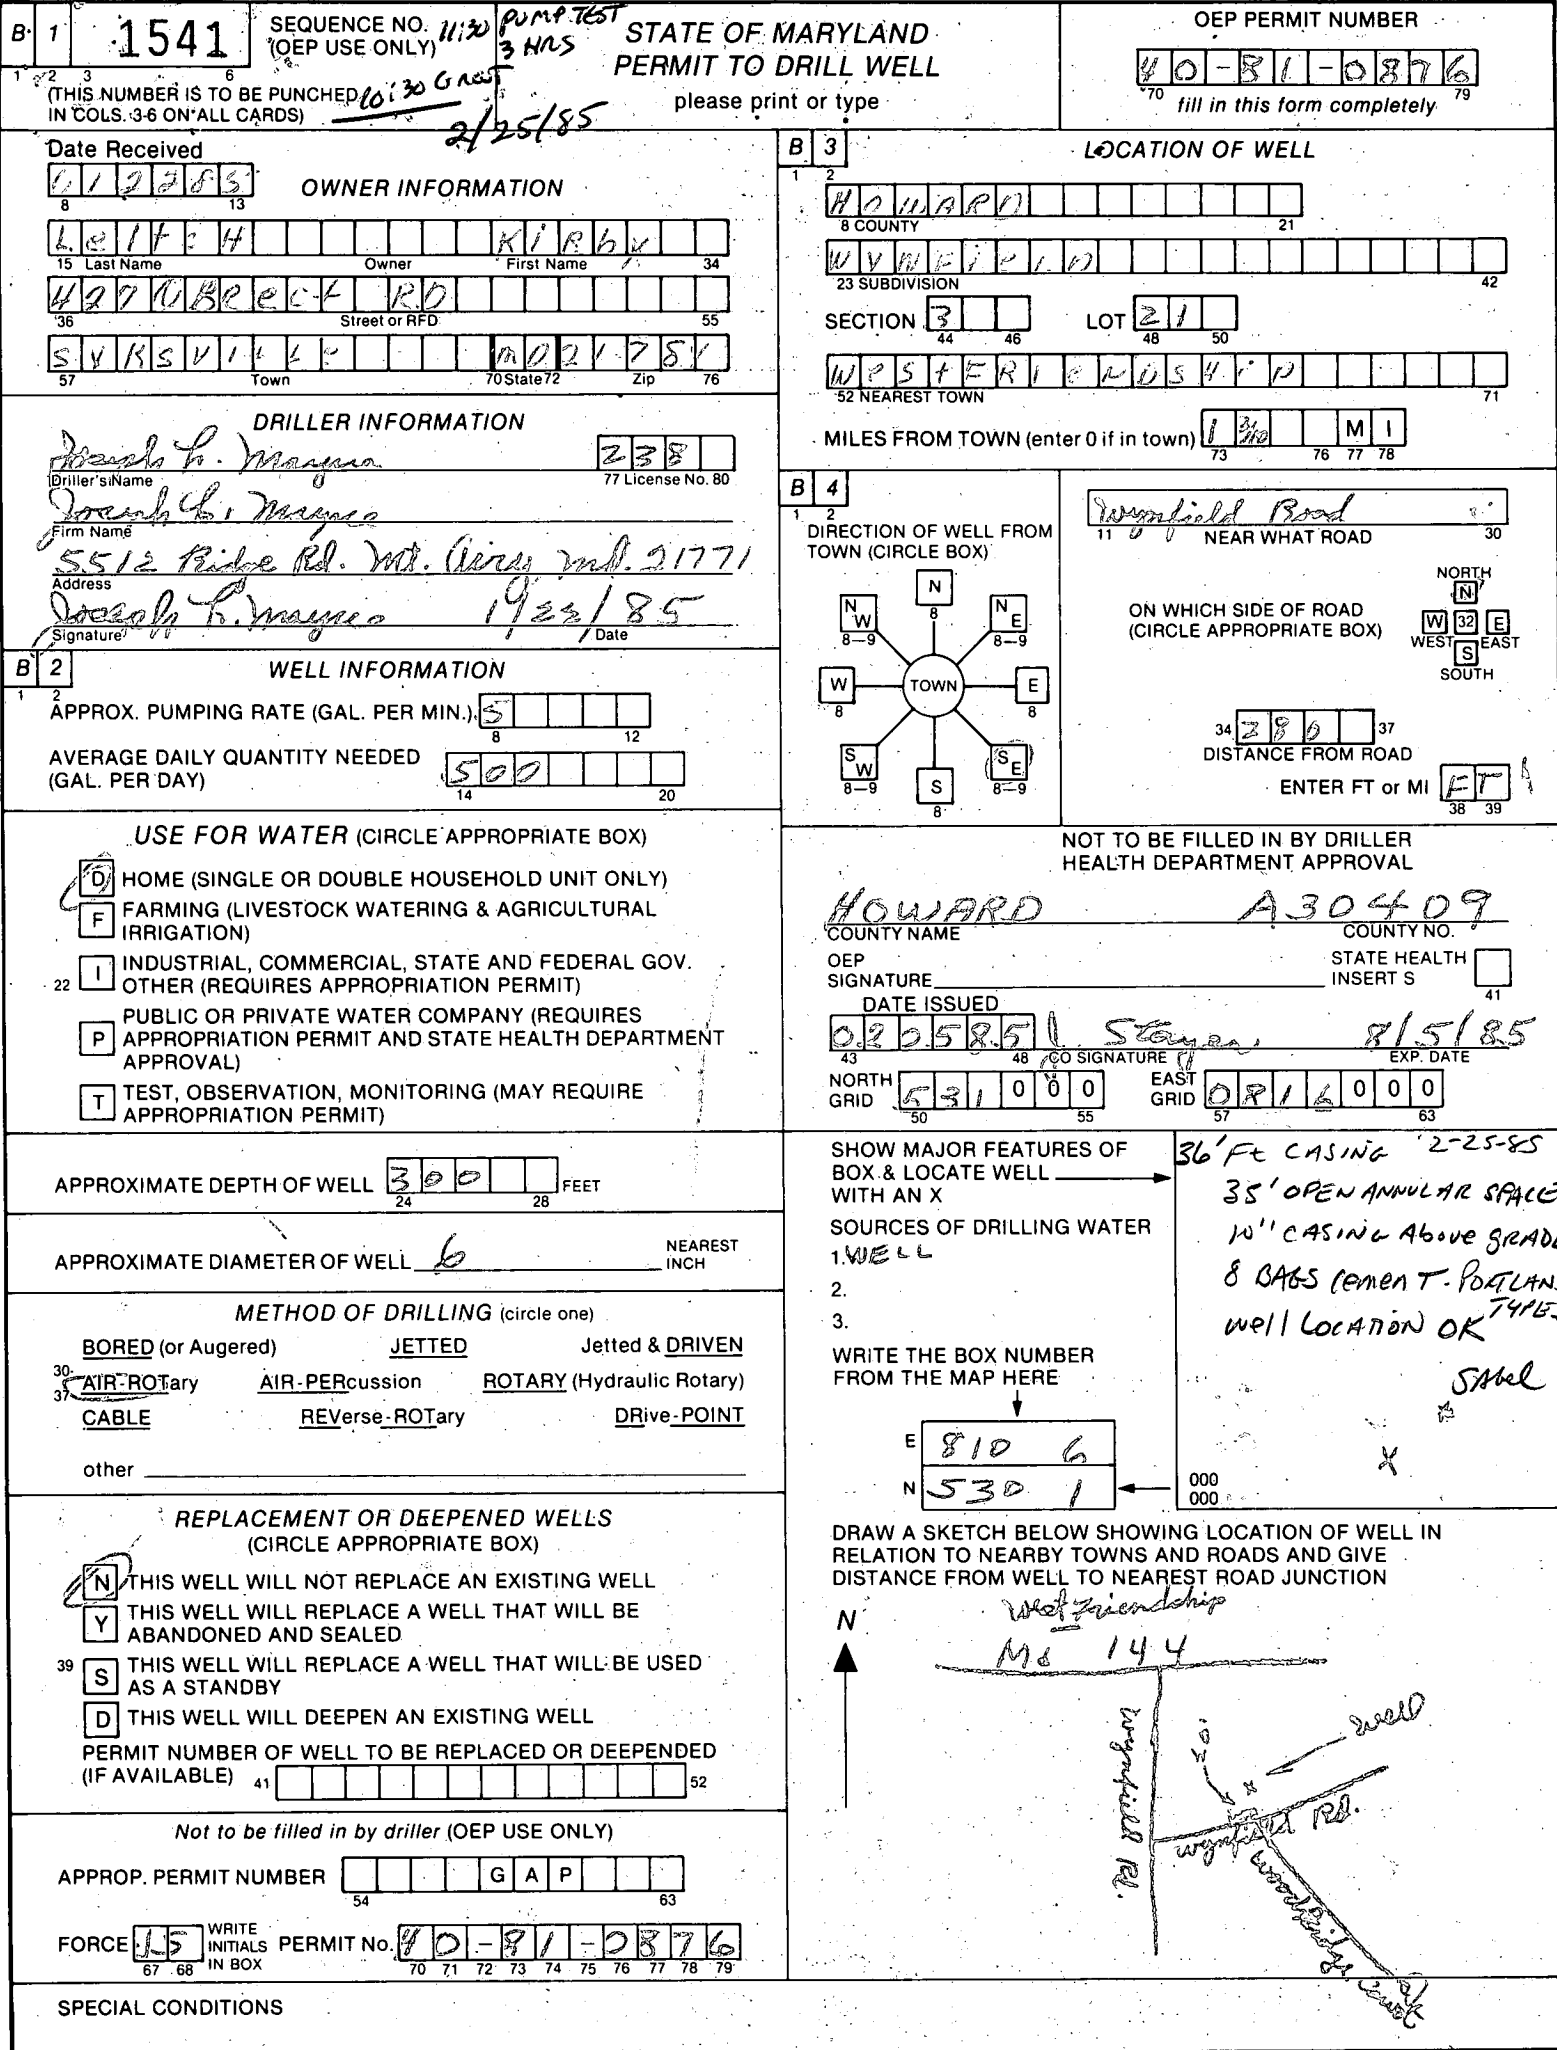 B 1 1541 SEQUENCE NO. (OEP USE ONLY)
1 2 3 6
(THIS NUMBER IS TO BE PUNCHED
IN COLS. 3-6 ON ALL CARDS)
11:30 PUMP TEST
3 HRS
10:30 Grout
2/25/85
STATE OF MARYLAND
PERMIT TO DRILL WELL
please print or type
OEP PERMIT NUMBER
40-81-0876
70 79
fill in this form completely
Date Received
012285
8 13
OWNER INFORMATION
LeitcH Kirby
15 Last Name Owner First Name 34
RD
36 Street or RFD 55
SYKSVille MD 21781
57 Town 70 State 72 Zip 76
DRILLER INFORMATION
Joseph L. Mayne 238
Driller's Name 77 License No. 80
Joseph L. Mayne
Firm Name
5512 Ridge Rd. Mt. Airy Md. 21771
Address
Joseph L. Mayne 1/22/85
Signature Date
B 2 WELL INFORMATION
1 2
APPROX. PUMPING RATE (GAL. PER MIN.) 5
8 12
AVERAGE DAILY QUANTITY NEEDED
(GAL. PER DAY) 500
14 20
USE FOR WATER (CIRCLE APPROPRIATE BOX)
D HOME (SINGLE OR DOUBLE HOUSEHOLD UNIT ONLY)
F FARMING (LIVESTOCK WATERING & AGRICULTURAL
IRRIGATION)
22 I INDUSTRIAL, COMMERCIAL, STATE AND FEDERAL GOV.
OTHER (REQUIRES APPROPRIATION PERMIT)
P PUBLIC OR PRIVATE WATER COMPANY (REQUIRES
APPROPRIATION PERMIT AND STATE HEALTH DEPARTMENT
APPROVAL)
T TEST, OBSERVATION, MONITORING (MAY REQUIRE
APPROPRIATION PERMIT)
APPROXIMATE DEPTH OF WELL 300 FEET
24 28
APPROXIMATE DIAMETER OF WELL 6 NEAREST
INCH
METHOD OF DRILLING (circle one)
BORED (or Augered) JETTED Jetted & DRIVEN
30-37 AIR-ROTary AIR-PERcussion ROTARY (Hydraulic Rotary)
CABLE REVerse-ROTary DRive-POINT
other
REPLACEMENT OR DEEPENED WELLS
(CIRCLE APPROPRIATE BOX)
N THIS WELL WILL NOT REPLACE AN EXISTING WELL
Y THIS WELL WILL REPLACE A WELL THAT WILL BE
ABANDONED AND SEALED
39 S THIS WELL WILL REPLACE A WELL THAT WILL BE USED
AS A STANDBY
D THIS WELL WILL DEEPEN AN EXISTING WELL
PERMIT NUMBER OF WELL TO BE REPLACED OR DEEPENDED
(IF AVAILABLE) 41 52
Not to be filled in by driller (OEP USE ONLY)
APPROP. PERMIT NUMBER GAP
54 63
FORCE JS WRITE INITIALS IN BOX PERMIT No. 40-81-0876
67 68 70 71 72 73 74 75 76 77 78 79
SPECIAL CONDITIONS
B 3 LOCATION OF WELL
1 2
HOWARD
8 COUNTY 21
WYNFielD
23 SUBDIVISION 42
SECTION 3 LOT 21
44 46 48 50
52 NEAREST TOWN 71
MILES FROM TOWN (enter 0 if in town) 1 3/10 MI
73 76 77 78
B 4
1 2
DIRECTION OF WELL FROM
TOWN (CIRCLE BOX)
N
8
NW NE
8-9 8-9
W TOWN E
8 8
SW SE
8-9 8-9
S
8
Wynfield Road
11 NEAR WHAT ROAD 30
ON WHICH SIDE OF ROAD
(CIRCLE APPROPRIATE BOX)
NORTH
N
W 32 E
WEST EAST
S
SOUTH
34 280 37
DISTANCE FROM ROAD
ENTER FT or MI FT
38 39
NOT TO BE FILLED IN BY DRILLER
HEALTH DEPARTMENT APPROVAL
HOWARD A30409
COUNTY NAME COUNTY NO.
OEP
SIGNATURE STATE HEALTH
INSERT S
41
DATE ISSUED
020585 8/5/85
43 48 CO SIGNATURE EXP. DATE
NORTH
GRID 531000 EAST
GRID 0816000
50 55 57 63
SHOW MAJOR FEATURES OF
BOX & LOCATE WELL
WITH AN X
SOURCES OF DRILLING WATER
1. WELL
2.
3.
WRITE THE BOX NUMBER
FROM THE MAP HERE
E 810 6
N 530 1
36' Ft CASING 2-25-85
35' OPEN ANNULAR SPACE
10" CASING Above GRADE
8 BAGS CemenT-PORTLAN
TYPE
Well LOCATION OK
SAbel
X
000
000
DRAW A SKETCH BELOW SHOWING LOCATION OF WELL IN
RELATION TO NEARBY TOWNS AND ROADS AND GIVE
DISTANCE FROM WELL TO NEAREST ROAD JUNCTION
N
West Friendship
Md 144
Wynfield Rd.
30'
well
x
Wynfield Rd.
Woodridge Court